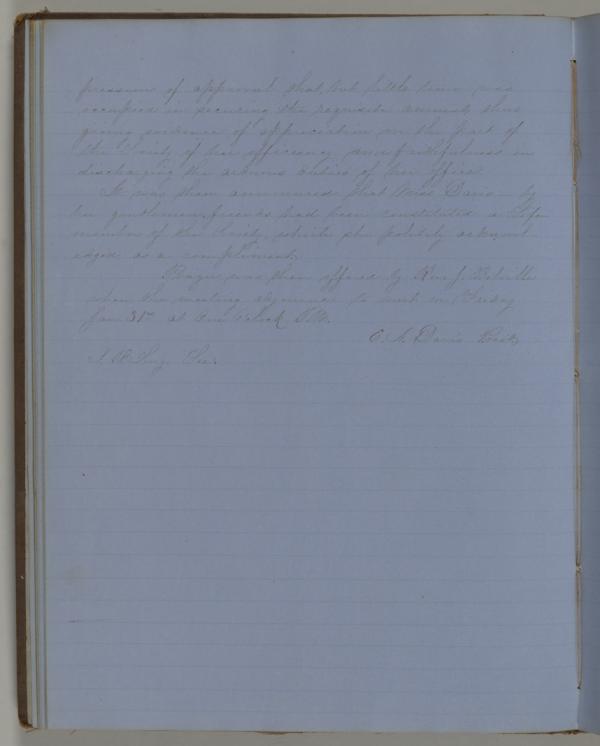 pressions of approval that but little time was
occupied in securing the requisite amount, thus
giving evidence of appreciation on the part of
the Society of her efficiency and faithfulness in
discharging the arduous duties of her office.
It was then announced that Miss Davis by
her gentlemen friends had been constituted a Life
member of the Society, which she politely acknowl
edged as a compliment.
Prayer was then offered by Rev J.
when the meeting adjourned to meet on Friday
Jan 31st at One O'clock P.M.
E. A. Davis